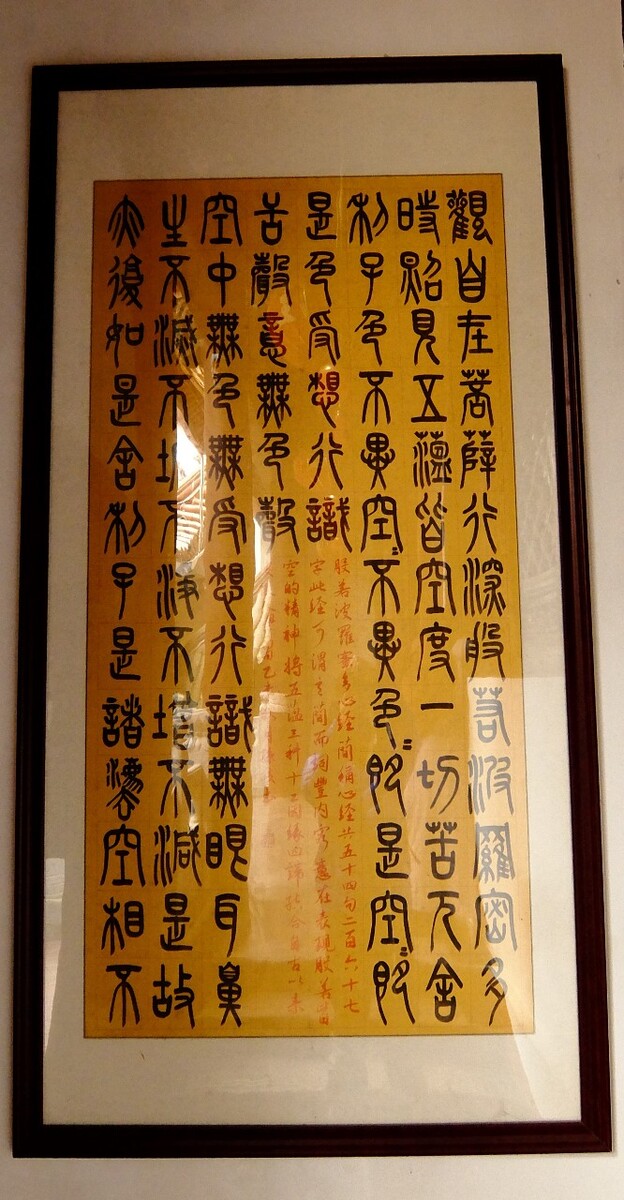 觀自在菩薩行深般若波羅密多
時照見五蘊皆空度一切苦厄舍
利子色不異空〻不異色〻即是空〻即
是色受想行識
般若波羅蜜多心經簡稱心經共五十四句二百六十七
字此經可謂言簡而詞豐內容在表現般若皆
空的精神將五蘊三科十二因緣四諦自古以來
苦聲意無色聲
空中無色無受想行識無眼耳鼻
生不滅不垢不淨不增不減是故
亦復如是舍利子是諸灋空相不